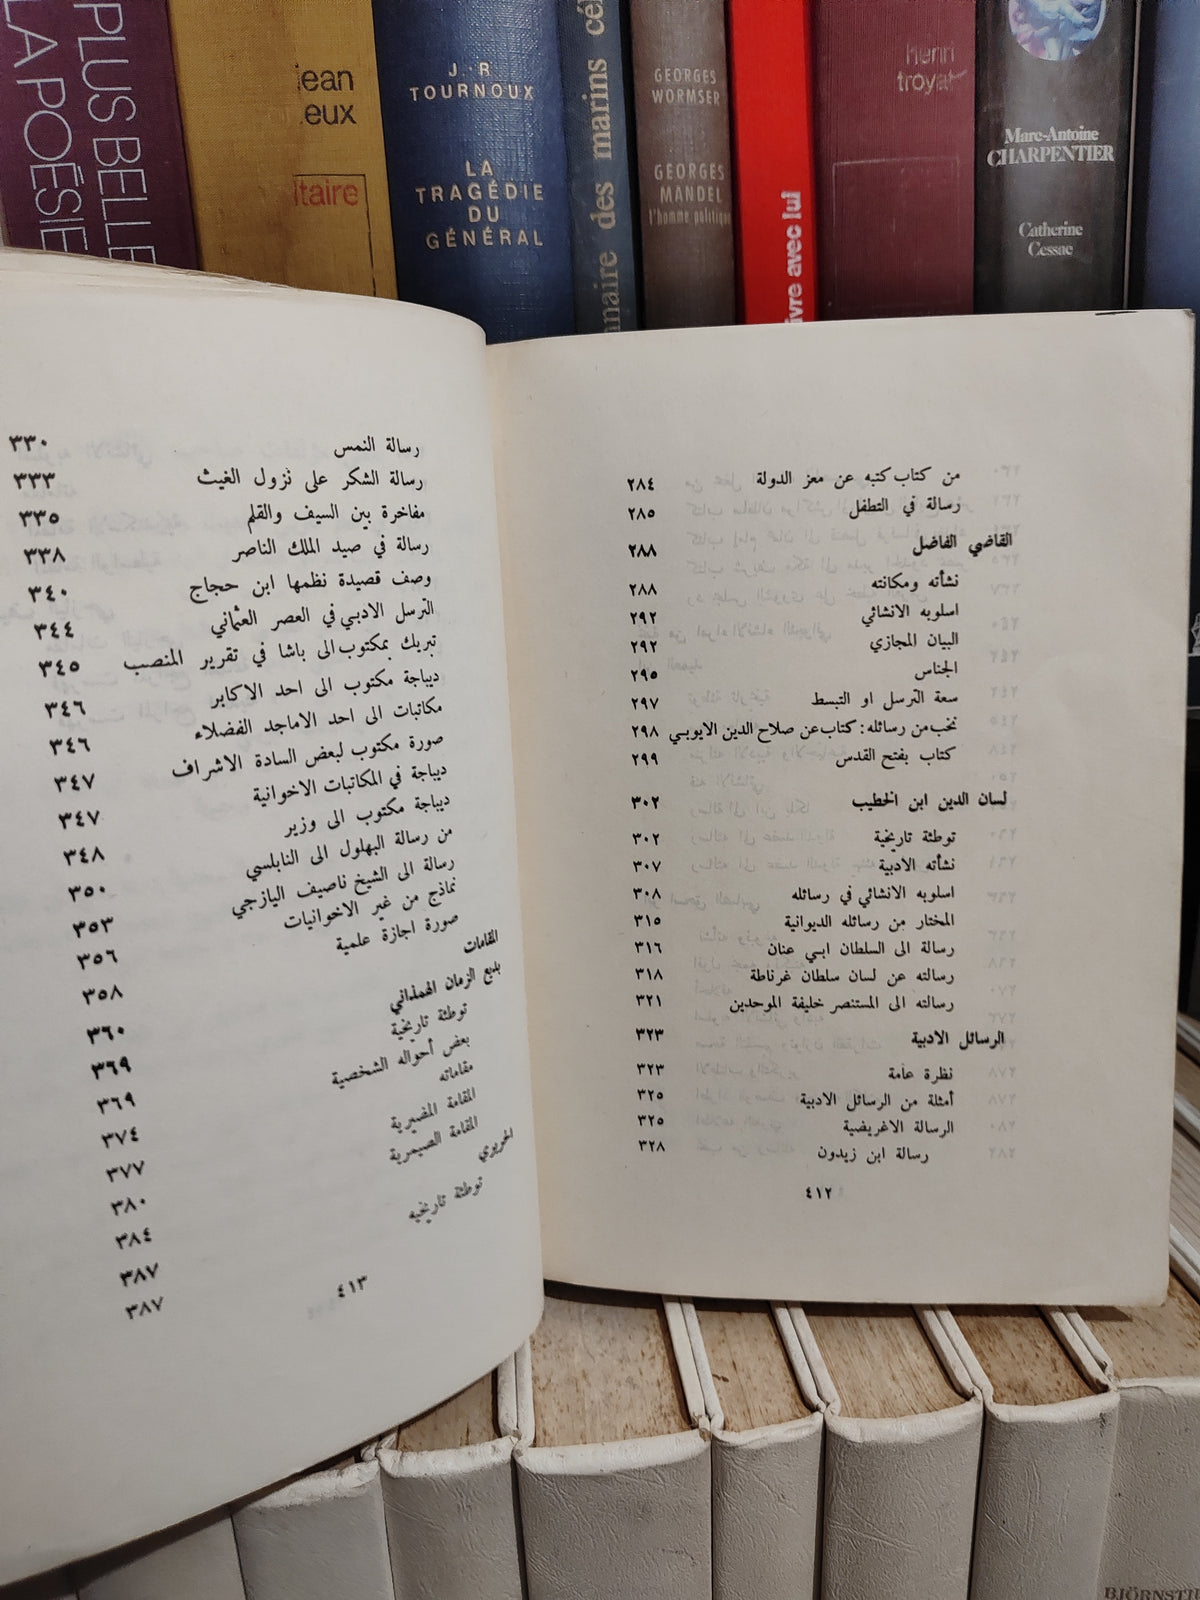 PLUS BELLE
LA POÉSIE
jean
eux
ltaire
J.-R.
TOURNOUX
LA
TRAGÉDIE
DU
GÉNÉRAL
nnaire des marins cél
GEORGES
WORMSER
GEORGES
MANDEL
l'homme politique
ivre avec lui
henri
troyat
Marc-Antoine
CHARPENTIER
Catherine
Cessac
من كتاب كتبه عن معز الدولة ٢٨٤
رسالة في التطفل ٢٨٥
القاضي الفاضل ٢٨٨
نشأته ومكانته ٢٨٨
اسلوبه الانشائي ٢٩٢
البيان المجازي ٢٩٢
الجناس ٢٩٥
سعة الترسل او التبسط ٢٩٧
نخب من رسائله : كتاب عن صلاح الدين الايوبي ٢٩٨
كتاب بفتح القدس ٢٩٩
لسان الدين ابن الخطيب ٣٠٢
توطئة تاريخية ٣٠٢
نشأته الادبية ٣٠٧
اسلوبه الانشائي في رسائله ٣٠٨
المختار من رسائله الديوانية ٣١٥
رسالة الى السلطان ابي عنان ٣١٦
رسالته عن لسان سلطان غرناطة ٣١٨
رسالته الى المستنصر خليفة الموحدين ٣٢١
الرسائل الادبية ٣٢٣
نظرة عامة ٣٢٣
أمثلة من الرسائل الادبية ٣٢٥
الرسالة الاغريضية ٣٢٥
رسالة ابن زيدون ٣٢٨
٤١٢
رسالة النمس ٣٣٠
رسالة الشكر على نزول الغيث ٣٣٣
مفاخرة بين السيف والقلم ٣٣٥
رسالة في صيد الملك الناصر ٣٣٨
وصف قصيدة نظمها ابن حجاج ٣٤٠
الترسل الادبي في العصر العثماني ٣٤٤
تبريك بمكتوب الى باشا في تقرير المنصب ٣٤٥
ديباجة مكتوب الى احد الاكابر ٣٤٦
مكاتبات الى احد الاماجد الفضلاء ٣٤٦
صورة مكتوب لبعض السادة الاشراف ٣٤٧
ديباجة في المكاتبات الاخوانية ٣٤٧
ديباجة مكتوب الى وزير ٣٤٨
من رسالة البهلول الى النابلسي ٣٥٠
رسالة الى الشيخ ناصيف اليازجي ٣٥٣
نماذج من غير الاخوانيات ٣٥٦
صورة اجازة علمية ٣٥٨
المقامات ٣٦٠
بديع الزمان الهمذاني ٣٦٩
توطئة تاريخية ٣٦٩
بعض أحواله الشخصية ٣٧٤
مقاماته ٣٧٧
المقامة المضيرية ٣٨٠
المقامة الصيمرية ٣٨٤
الحريري ٣٨٧
توطئة تاريخيه ٣٨٧
٤١٣